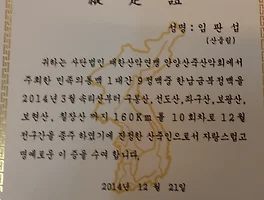 성명 : 임 판 섭
(산울림)
귀하는 사단법인 대한산악연맹 안양산죽산악회에서
주최한 민족의통맥 1대간 9정맥중 한남금북정맥을
2014년3월 속리산부터 구봉산, 선도산, 좌구산, 보광산,
보현산, 칠장산 까지 160Km 를 10회차로 12월
전구간을 종주 하였기에 진정한 산죽인으로서 자랑스럽고
명예로운 이 증을 수여 합니다.
2014년 12 월 21일